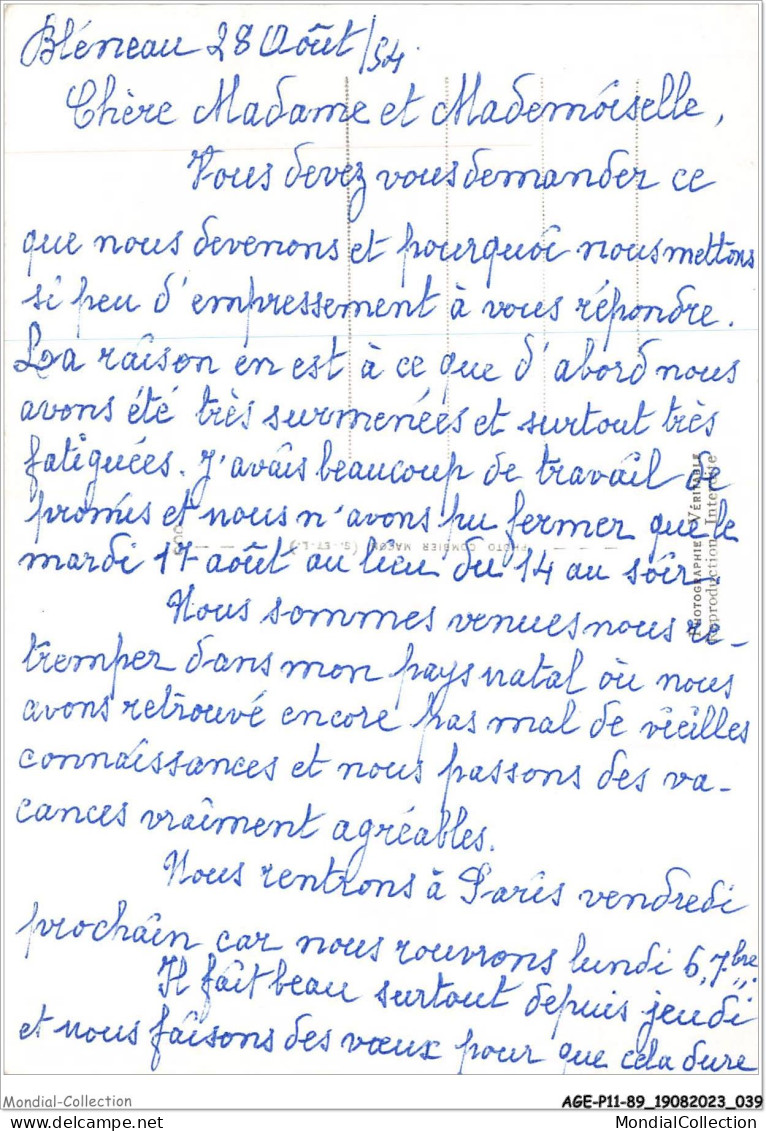 Bléneau 28 Août/54.
Chère Madame et Mademoiselle,
Vous devez vous demander ce
que nous devenons et pourquoi nous mettons
si peu d'empressement à vous répondre.
La raison en est à ce que d'abord nous
avons été très surmenées et surtout très
fatiguées. J'avais beaucoup de travail de
promis et nous n'avons pu fermer que le
mardi 17 août au lieu du 14 au soir.
Nous sommes venues nous re-
tremper dans mon pays natal où nous
avons retrouvé encore pas mal de vieilles
connaissances et nous passons des va-
cances vraiment agréables.
Nous rentrons à Paris vendredi
prochain car nous rouvrons lundi 6, 7bre.
Il fait beau surtout depuis jeudi
et nous faisons des vœux pour que cela dure
PHOTOGRAPHIE VÉRITABLE
Reproduction Interdite
PHOTO COMBIER MACON (S.-ET-L.)
Mondial-Collection
AGE-P11-89_19082023_039
MondialCollection